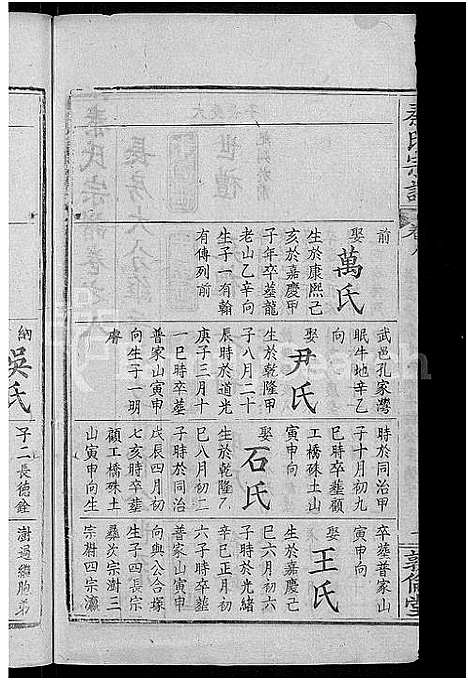 秦氏宗譜
卷八
前
娶萬氏
生於康熙己
亥於嘉慶甲
子年卒墓龍
老山乙辛向
生子一有翰
有傳列前
武邑孔家灣
眠牛地辛乙
向
娶尹氏
生於乾隆甲
子八月二十
辰時於道光
庚子三月十
一巳時卒墓
普家山寅申
向生子一明
睿
時於同治甲
子十月初九
巳時卒墓顧
工橋硃土山
寅申向
娶石氏
生於乾隆乙
巳八月初二
子時於同治
戊辰四月初
七亥時卒墓
顧工橋硃土
山寅申向生
卒墓普家山
寅申向
娶王氏
生於嘉慶己
巳六月初六
子時於光緒
辛巳正月初
六子時卒墓
普家山寅申
向與公合塚
生子四長宗
彝次宗澍三
宗衡四宗瀛
敦倫堂
納吳氏
子二長德銓
澍過繼胞弟
世禮
長房大公
秦氏宗譜卷之八